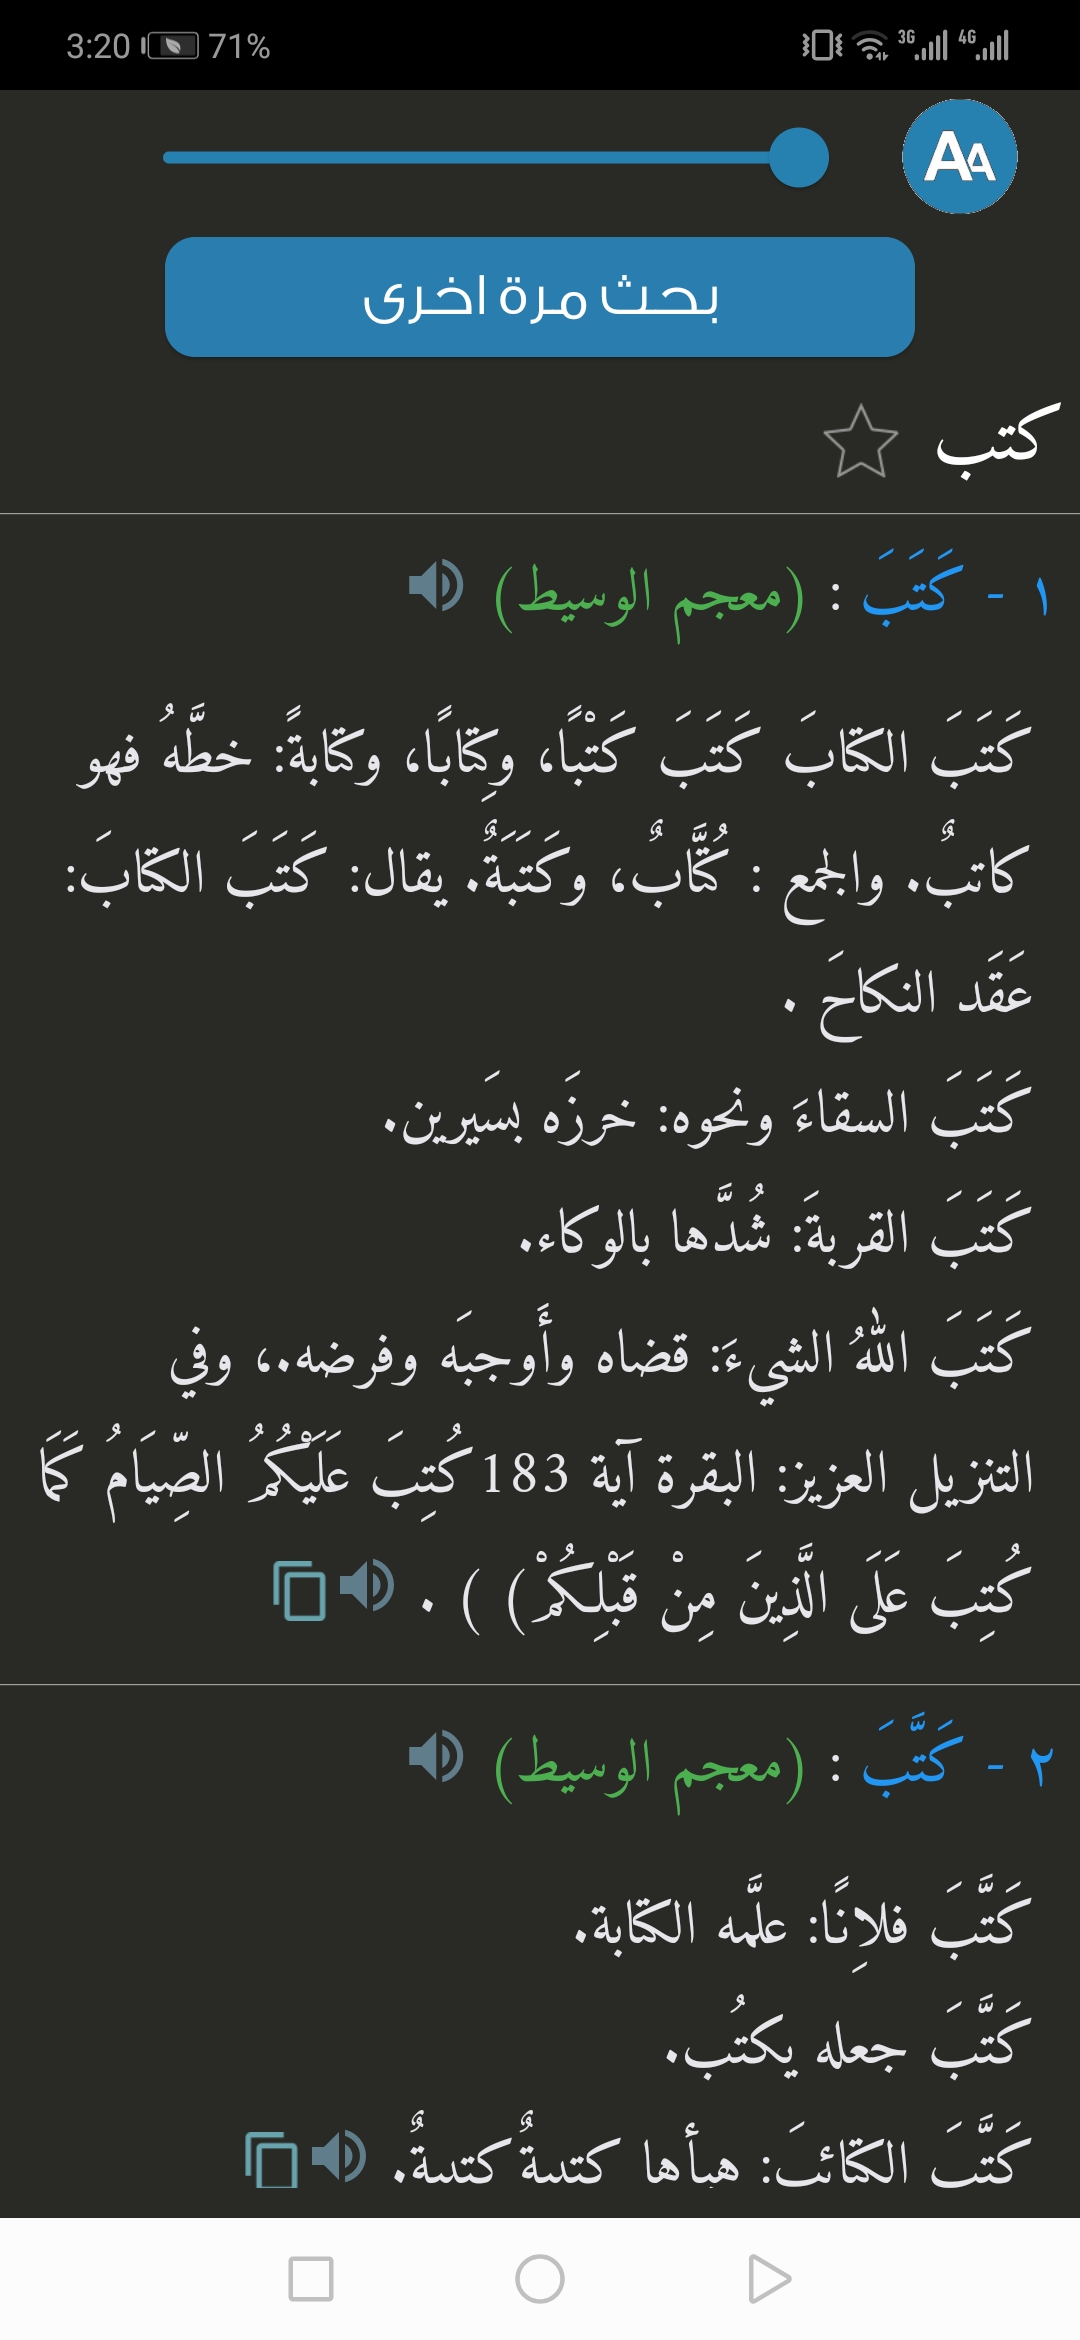 3:20 71% 3G 4G
AA
بحث مرة اخرى
كتب
١ - كَتَبَ : (معجم الوسيط)
كَتَبَ الكتابَ كَتَبَ كَتْبًا، وكِتابًا، وكتابةً: خطَّهُ فهو
كاتبٌ. والجمع : كُتَّابٌ، وكَتَبَةٌ. يقال: كَتَبَ الكتابَ:
عَقَد النكاحَ .
كَتَبَ السقاءَ ونحوه: خرزَه بسَيرين.
كَتَبَ القربةَ: شُدَّها بالوكاء.
كَتَبَ اللهُ الشيءَ: قضاه وأَوجبَه وفرضه.، وفي
التنزيل العزيز: البقرة آية 183كُتِبَ عَلَيْكُمُ الصِّيَامُ كَمَا
كُتِبَ عَلَى الَّذِينَ مِنْ قَبْلِكُمْ) ) .
٢ - كَتَّبَ : (معجم الوسيط)
كَتَّبَ فلاِنًا: علَّمه الكتابة.
كَتَّبَ جعله يكتُب.
كَتَّبَ الكتائبَ: هيأها كتيبةٌ كتيبةٌ.